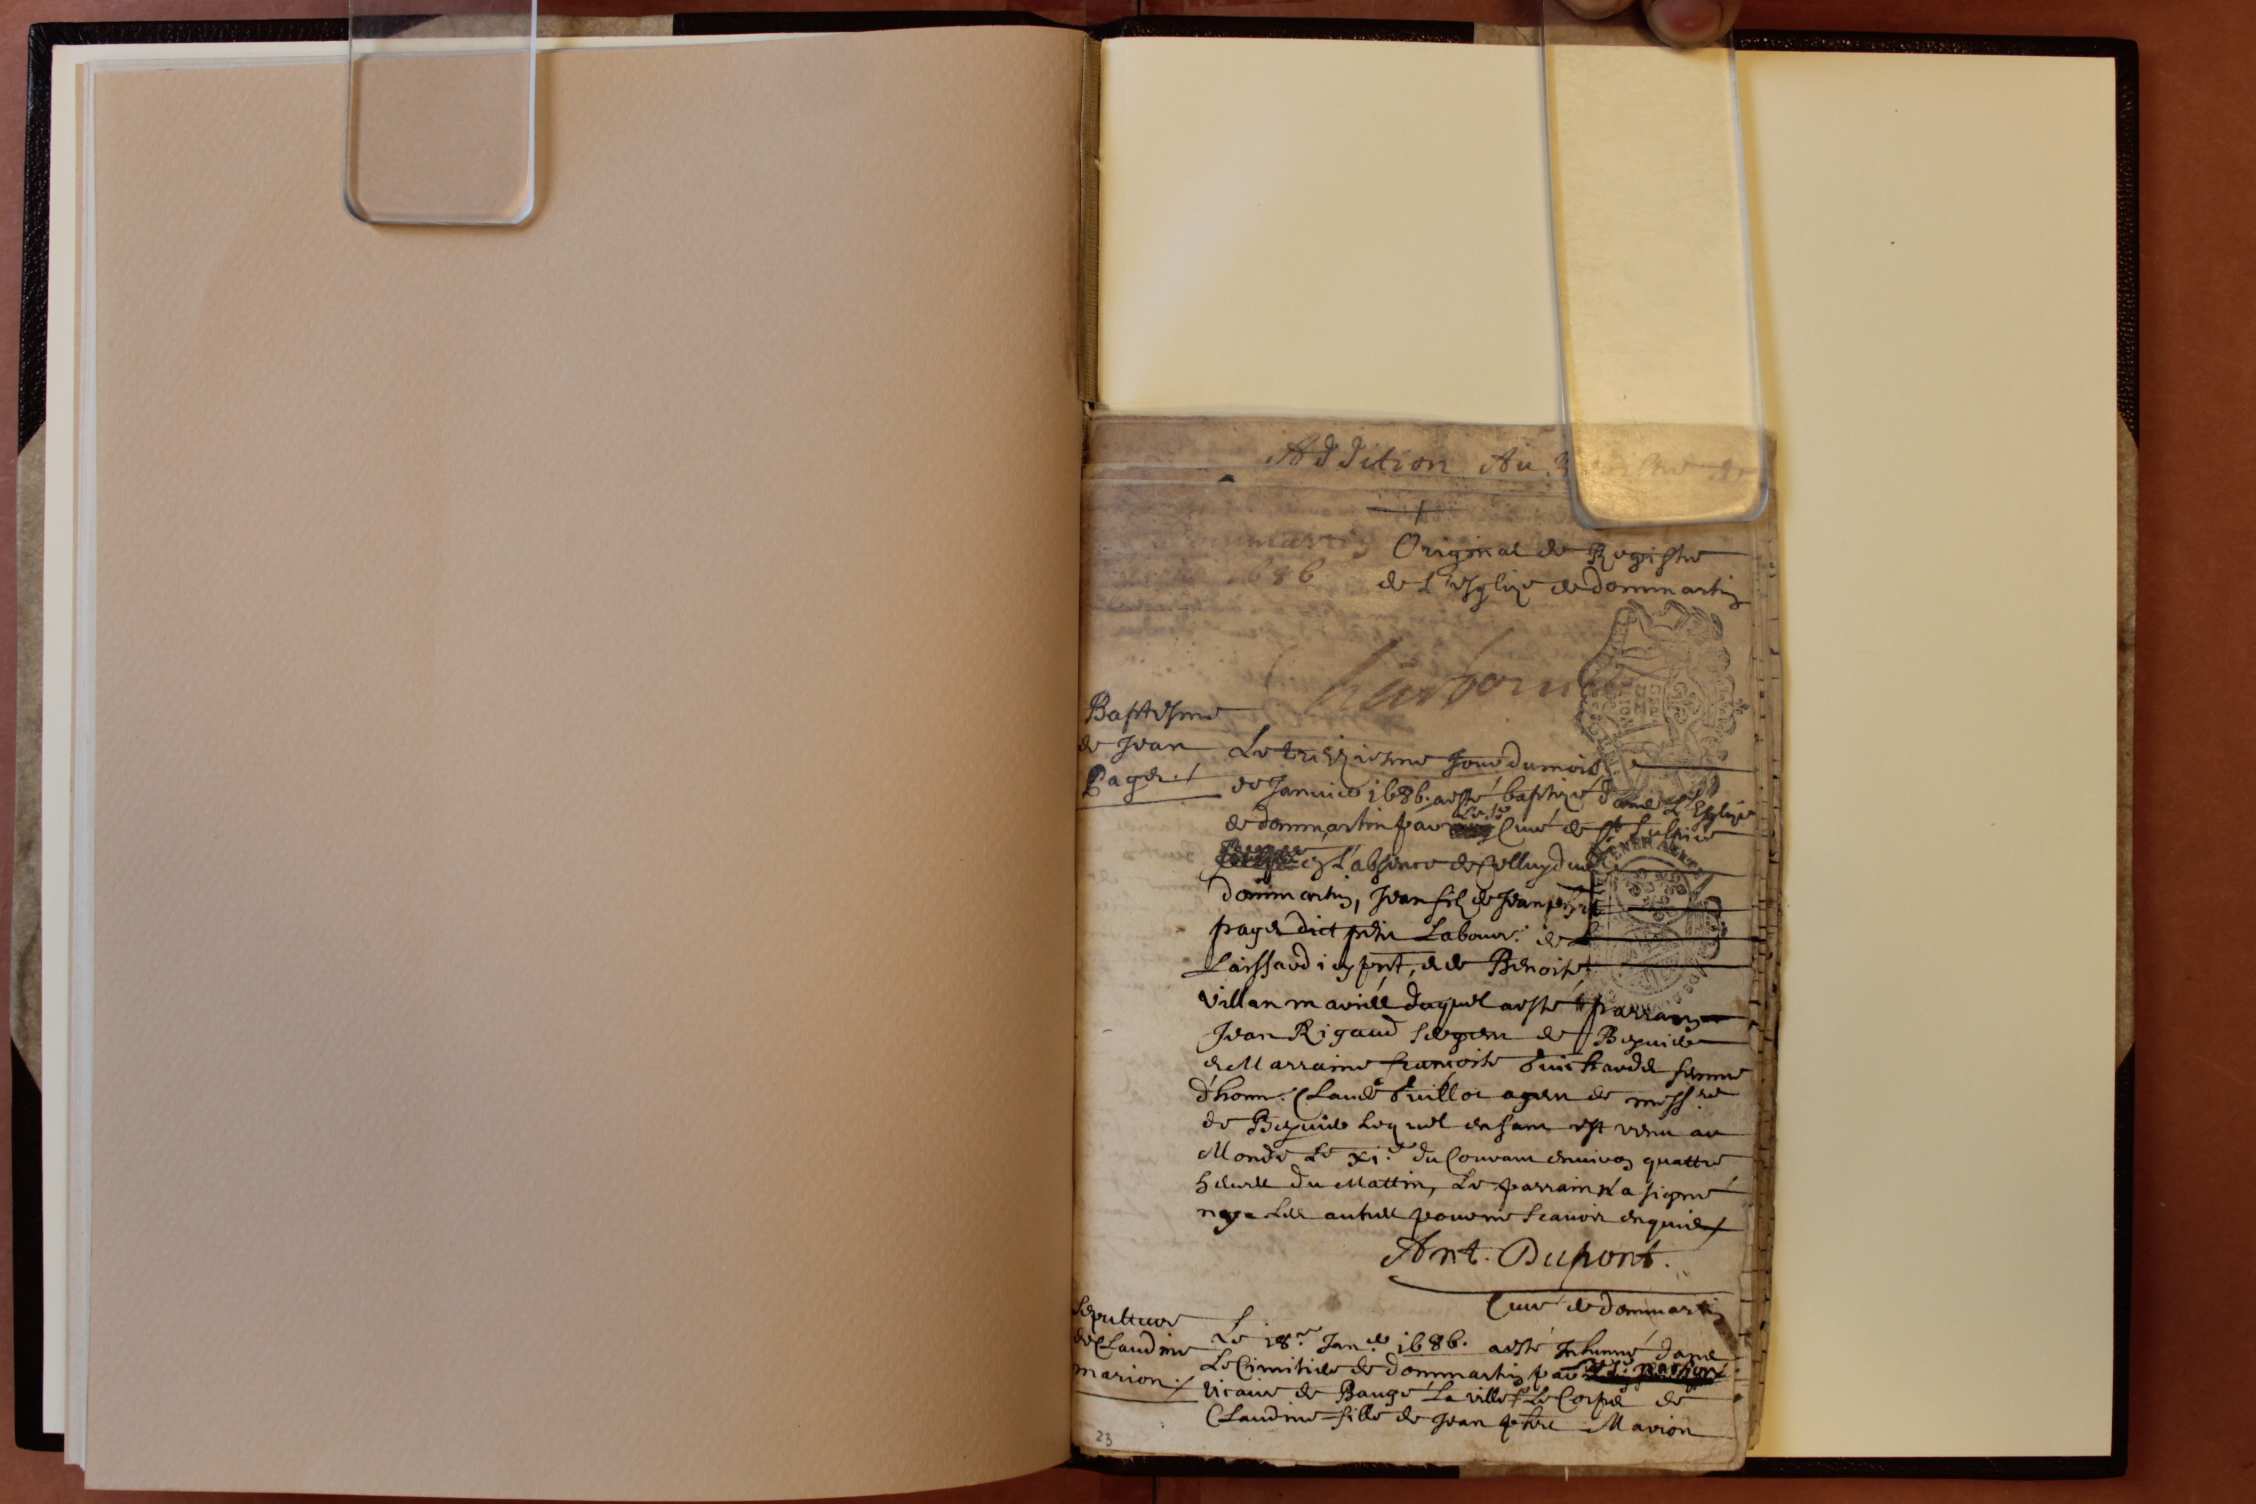 Addition Au
Original de Registre
de L'esglize de dommartin
Baptesme
de Jean
Pager
Le treiziesme Jour du mois
de Januier 1686. a esté baptizé dans L'Esglize
de dommartin par Curé de St Sulpice
en L'absence de Celluy de
dommartin, Jean filz de Jean
pager dict petit Labour. de
Laissard i en prnt, et de Benoiste
villan mariés duquel a esté parrain
Jean Rigaud sergent de Beguide
et Marraine françoise Guichardet femme
d'honn. Claude Guillot agent de mess.rs
de Beguide Lequel enfant est venu au
Monde Le xi.e du Courant enuiron quattre
heures du Mattin, Le parrain n'a signé
ny Les autres pour ne scauoir enquis
Ant. Dupont.
Curé de dommartin
Sepulture
de Claudine
marion
Le 18.e Jan.er 1686. a esté Inhumé dans
Le Cimitiere de dommartin par
Vicaire de Baugé La ville Le Corps de
Claudine fille de Jean Marion
23